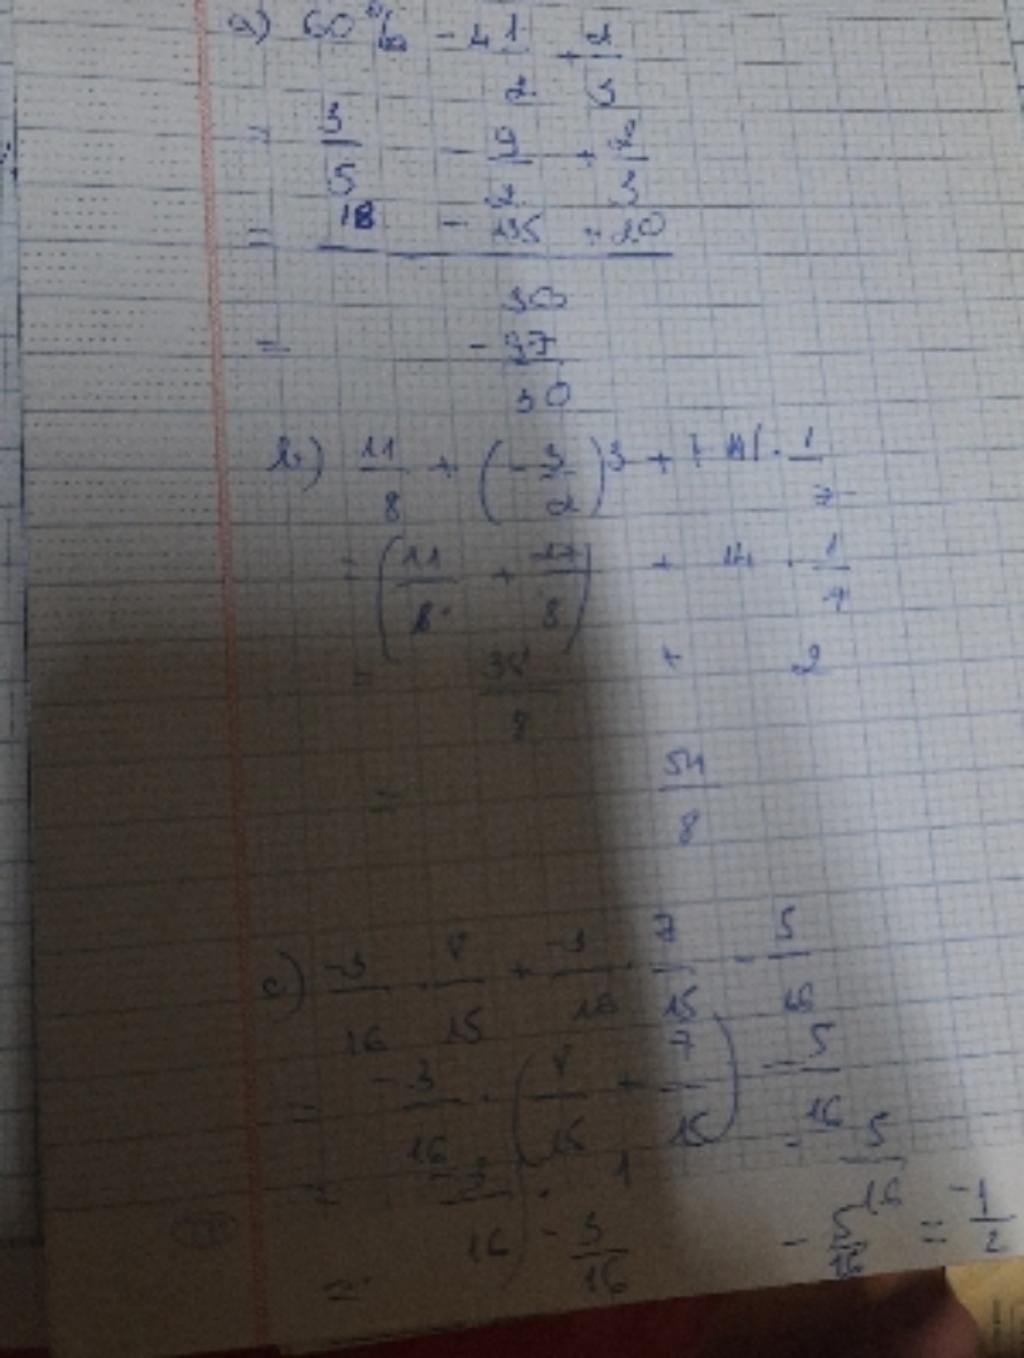 a) 60% - 4 1/2 + 2/3
= 3/5 - 9/2 + 2/3
= (18 - 135 + 20)/30
= -97/30
b) 11/8 + (-3/2)^3 + |-14| · 1/7
= (11/8 + 27/8) + 14 · 1/7
= 38/8 + 2
= 54/8
c) -3/16 · 8/15 + -3/16 · 7/15 - 5/16
= -3/16 · (8/15 + 7/15) - 5/16
= -3/16 · 1 - 5/16
= -3/16 - 5/16 = -1/2